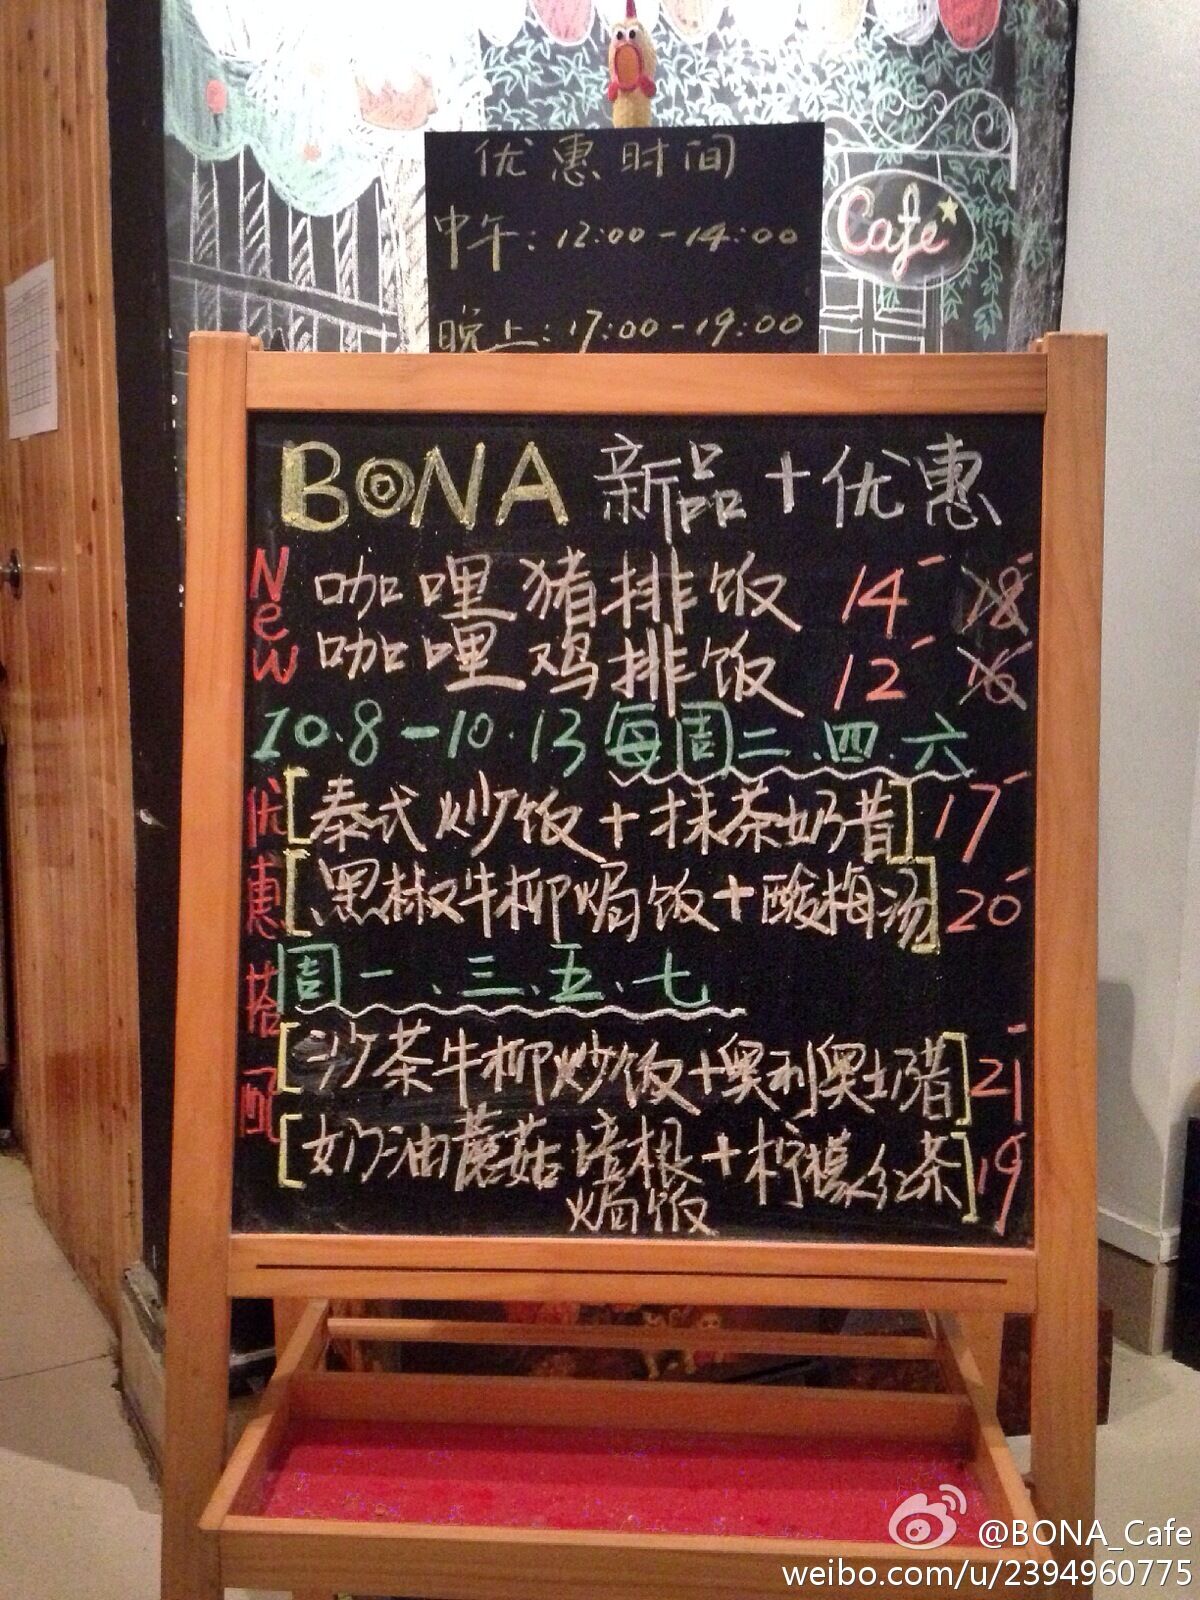 优惠时间
中午：12:00-14:00
晚上：17:00-19:00
Cafe
BONA 新品+优惠
New
咖喱猪排饭 14- 18-
咖喱鸡排饭 12- 16-
10.8-10.13 每周二.四.六
优惠搭配
[泰式炒饭+抹茶奶昔] 17-
[黑椒牛柳焗饭+酸梅汤] 20-
周一.三.五.七
[沙茶牛柳炒饭+奥利奥奶昔] 21-
[奶油蘑菇培根焗饭+柠檬红茶] 19-
@BONA_Cafe
weibo.com/u/2394960775